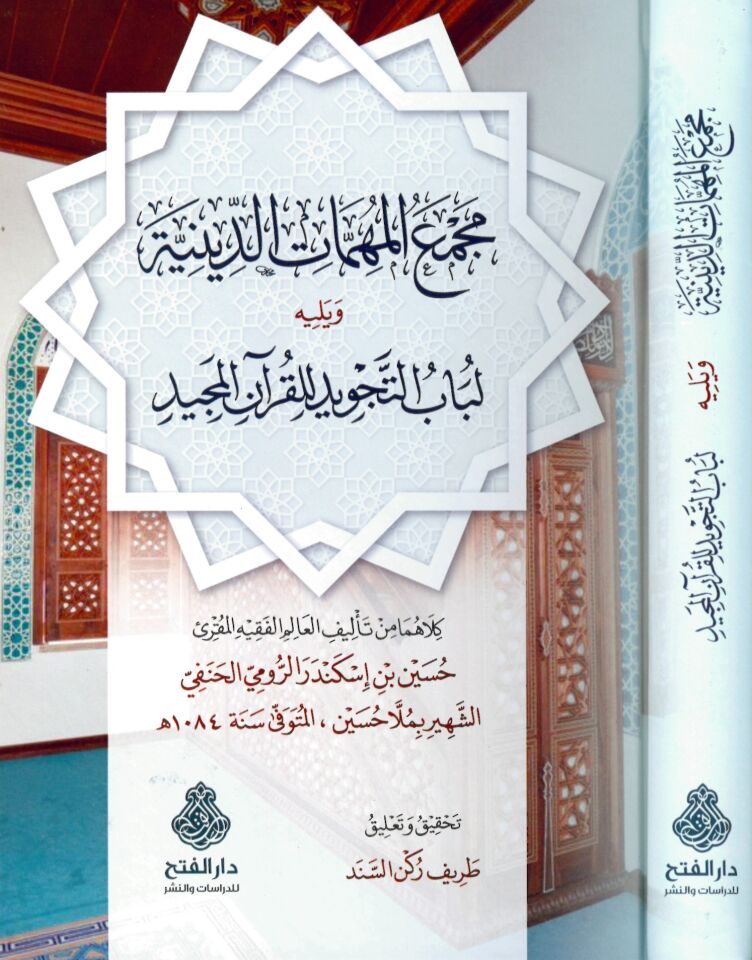 مَجْمَعُ المُهِمَّاتِ الدِّينِيَّة
وَيَلِيه
لُبَابُ التَّجْوِيدِ لِلْقُرآنِ المَجِيدِ
كِلَاهُمَا مِنْ تَأْلِيفِ العَالِمِ الفَقِيهِ المُقْرِئ
حُسَيْن بْنِ إِسْكَنْدَرَ الرُّومِيِّ الحَنَفِيِّ
الشَّهِيرِ بِمُلَّا حُسَيْن ، المُتَوَفَّى سَنَة ١٠٨٤هـ
تَحْقِيقُ وَتَعْلِيقُ
طَرِيف رُكْن السَّنَد
دار الفتح
للدراسات والنشر
مَجْمَعُ المُهِمَّاتِ الدِّينِيَّة
وَيَلِيه
لُبَابُ التَّجْوِيدِ لِلْقُرآنِ المَجِيدِ
دار الفتح
للدراسات والنشر